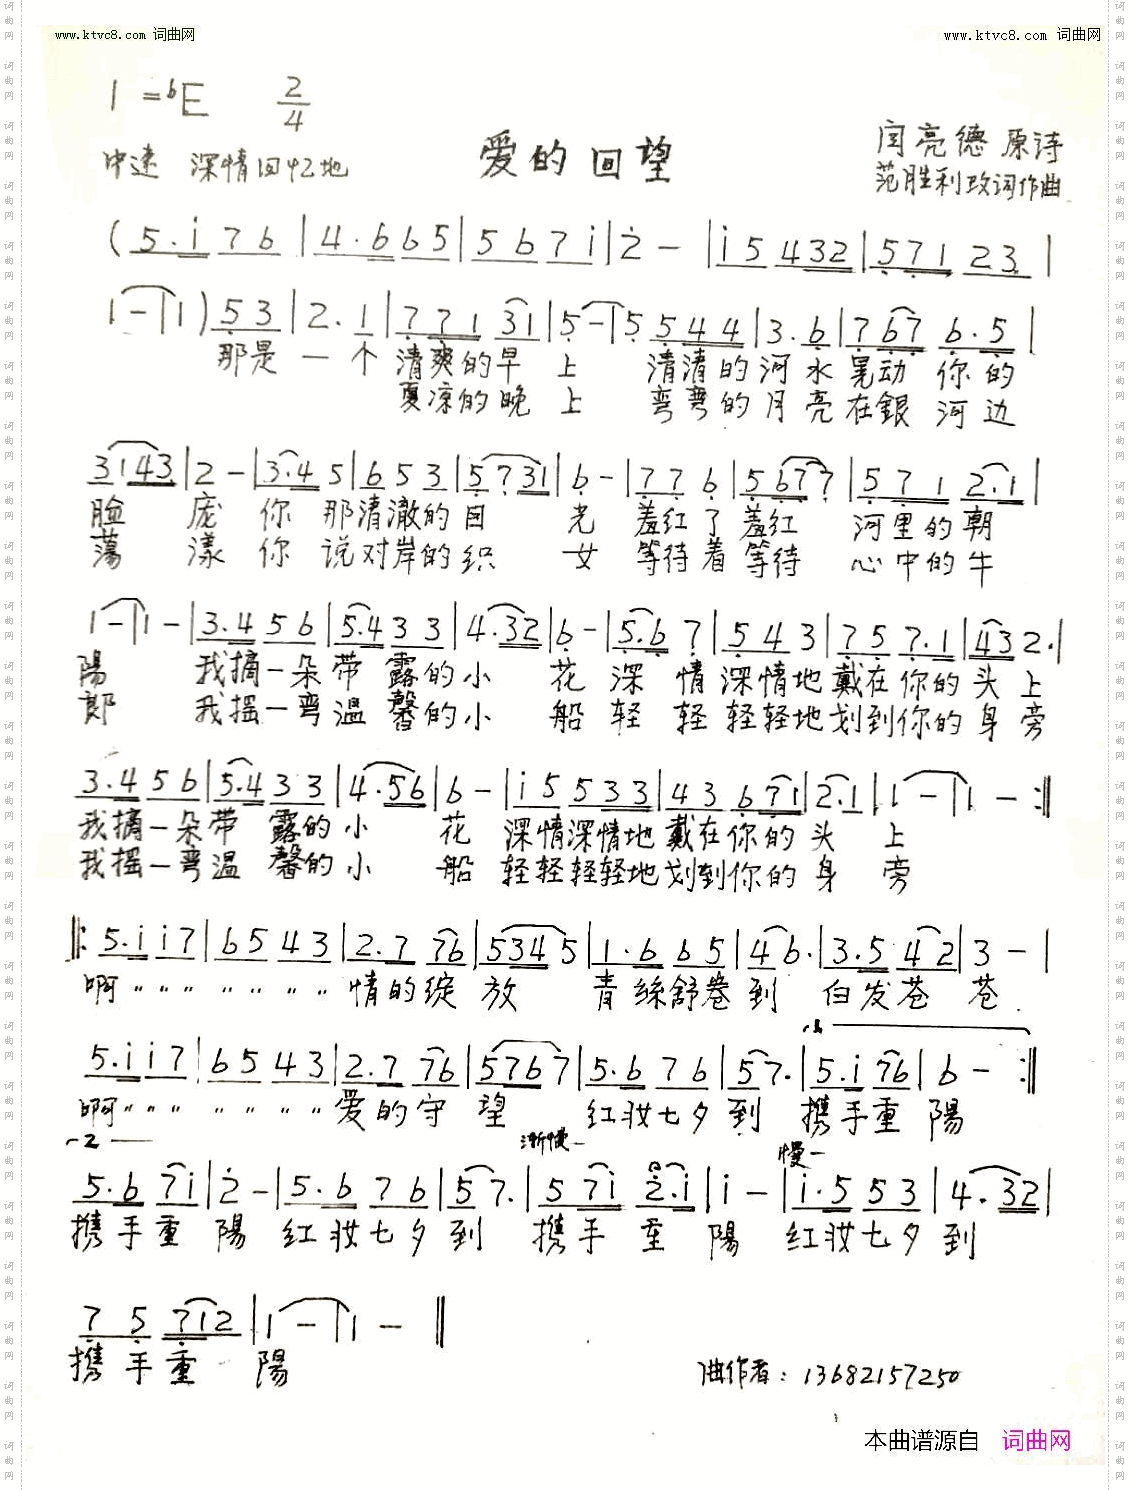 www.ktvc8.com 词曲网
www.ktvc8.com 词曲网
1=bE 2/4
爱的回望
闫亮德 原诗
中速 深情回忆地
范胜利改词作曲
(5.i 7 6 | 4.6 6 5 | 5 6 7 i | 2 - | i 5 4 3 2 | 5 7 1 2 3 |
1 - | 1 ) 5 3 | 2. 1 | 7 7 1 3 1 | 5 - | 5 5 4 4 | 3. 6 | 7 6 7 6.5 |
那是一个清爽的早上 清清的河水晃动你的
夏凉的晚上 弯弯的月亮在銀河边
3 1 4 3 | 2 - | 3.4 5 | 6 5 3 | 5 7 3 1 | 6 - | 7 7 6 | 5 6 7 7 | 5 7 1 2.1 |
脸庞你那清澈的目光 羞红了羞红 河里的朝
荡漾你说对岸的织女 等待着等待 心中的牛
1 - | 1 - | 3.4 5 6 | 5.4 3 3 | 4.3 2 | 6 - | 5.6 7 | 5 4 3 | 7 5 7.1 | 4 3 2. |
陽 我摘一朵带露的小花 深情深情地戴在你的头上
郎 我摇一弯温馨的小船 轻轻轻轻地划到你的身旁
3.4 5 6 | 5.4 3 3 | 4.5 6 | 6 - | i 5 5 3 3 | 4 3 6 7 1 | 2.1 | 1 - | 1 - :||
我摘一朵带露的小花 深情深情地戴在你的头上
我摇一弯温馨的小船 轻轻轻轻地划到你的身旁
||: 5.i i 7 | 6 5 4 3 | 2.7 7 6 | 5 3 4 5 | 1.6 6 5 | 4 6. | 3.5 4 2 | 3 - |
啊〃〃〃〃〃〃〃情的绽放 青絲舒卷到 白发苍苍
1.
5.i i 7 | 6 5 4 3 | 2.7 7 6 | 5 7 6 7 | 5.6 7 6 | 5 7. | 5.i 7 6 | 6 - :||
啊〃〃〃〃〃〃〃爱的守望 红妆七夕到 携手重陽
2. 渐慢 慢
5.6 7 i | 2 - | 5.6 7 6 | 5 7. | 5 7 i 2.i | i - | i.5 5 3 | 4.3 2 |
携手重陽 红妆七夕到 携手重陽 红妆七夕到
7 5 7 1 2 | 1 - | 1 - ||
携手重陽
曲作者：13682157250
本曲谱源自 词曲网